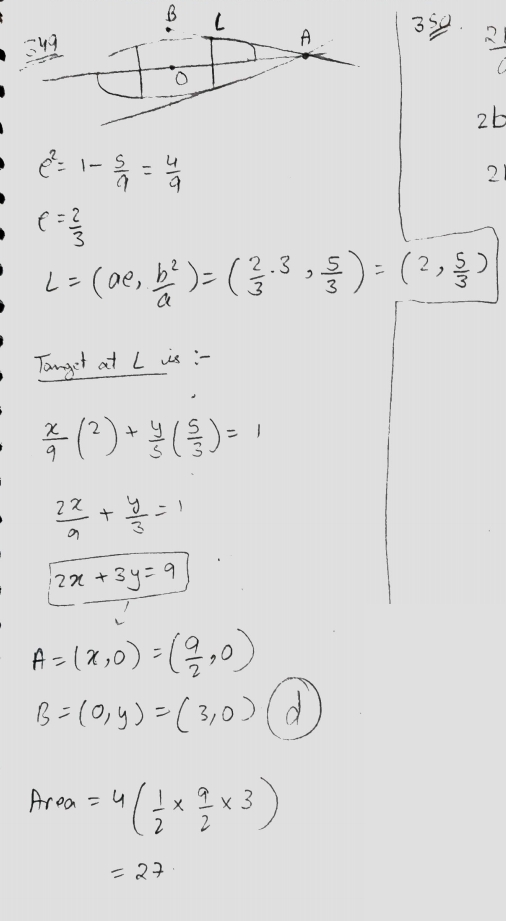 349
B L A
O
e² = 1 - 5/9 = 4/9
e = 2/3
L = (ae, b²/a) = (2/3 . 3, 5/3) = (2, 5/3)
Tanget at L is :-
x/9 (2) + y/5 (5/3) = 1
2x/9 + y/3 = 1
2x + 3y = 9
A = (x, 0) = (9/2, 0)
B = (0, y) = (3, 0) d
Area = 4 (1/2 x 9/2 x 3)
= 27
350.
2b